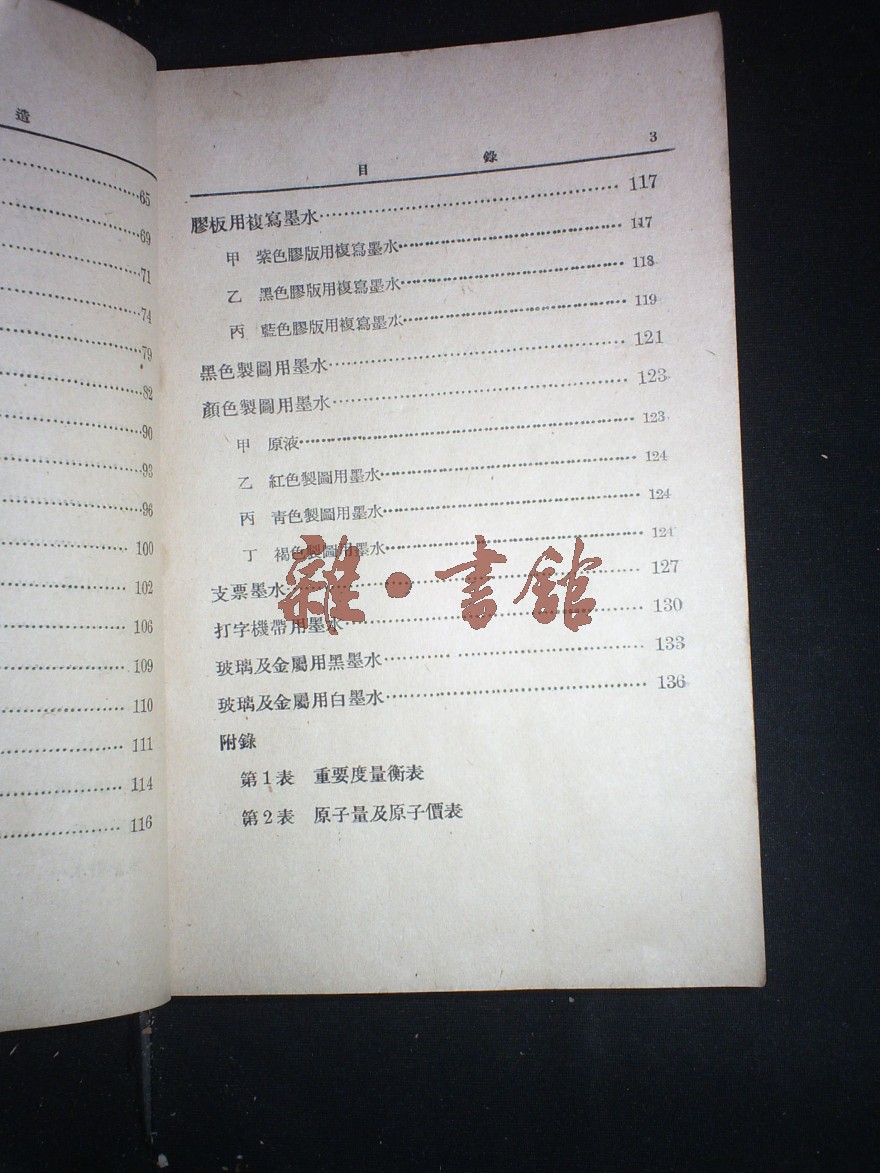 造
65
69
71
74
79
82
90
93
96
100
102
106
109
110
111
114
116
目 錄 3
膠板用複寫墨水 117
甲 紫色膠版用複寫墨水 117
乙 黑色膠版用複寫墨水 118
丙 藍色膠版用複寫墨水 119
黑色製圖用墨水 121
顏色製圖用墨水 123
甲 原液 123
乙 紅色製圖用墨水 124
丙 靑色製圖用墨水 124
丁 褐色製圖用墨水 124
支票墨水 127
打字機帶用墨水 130
玻璃及金屬用黑墨水 133
玻璃及金屬用白墨水 136
附錄
第1表 重要度量衡表
第2表 原子量及原子價表
雜·書館